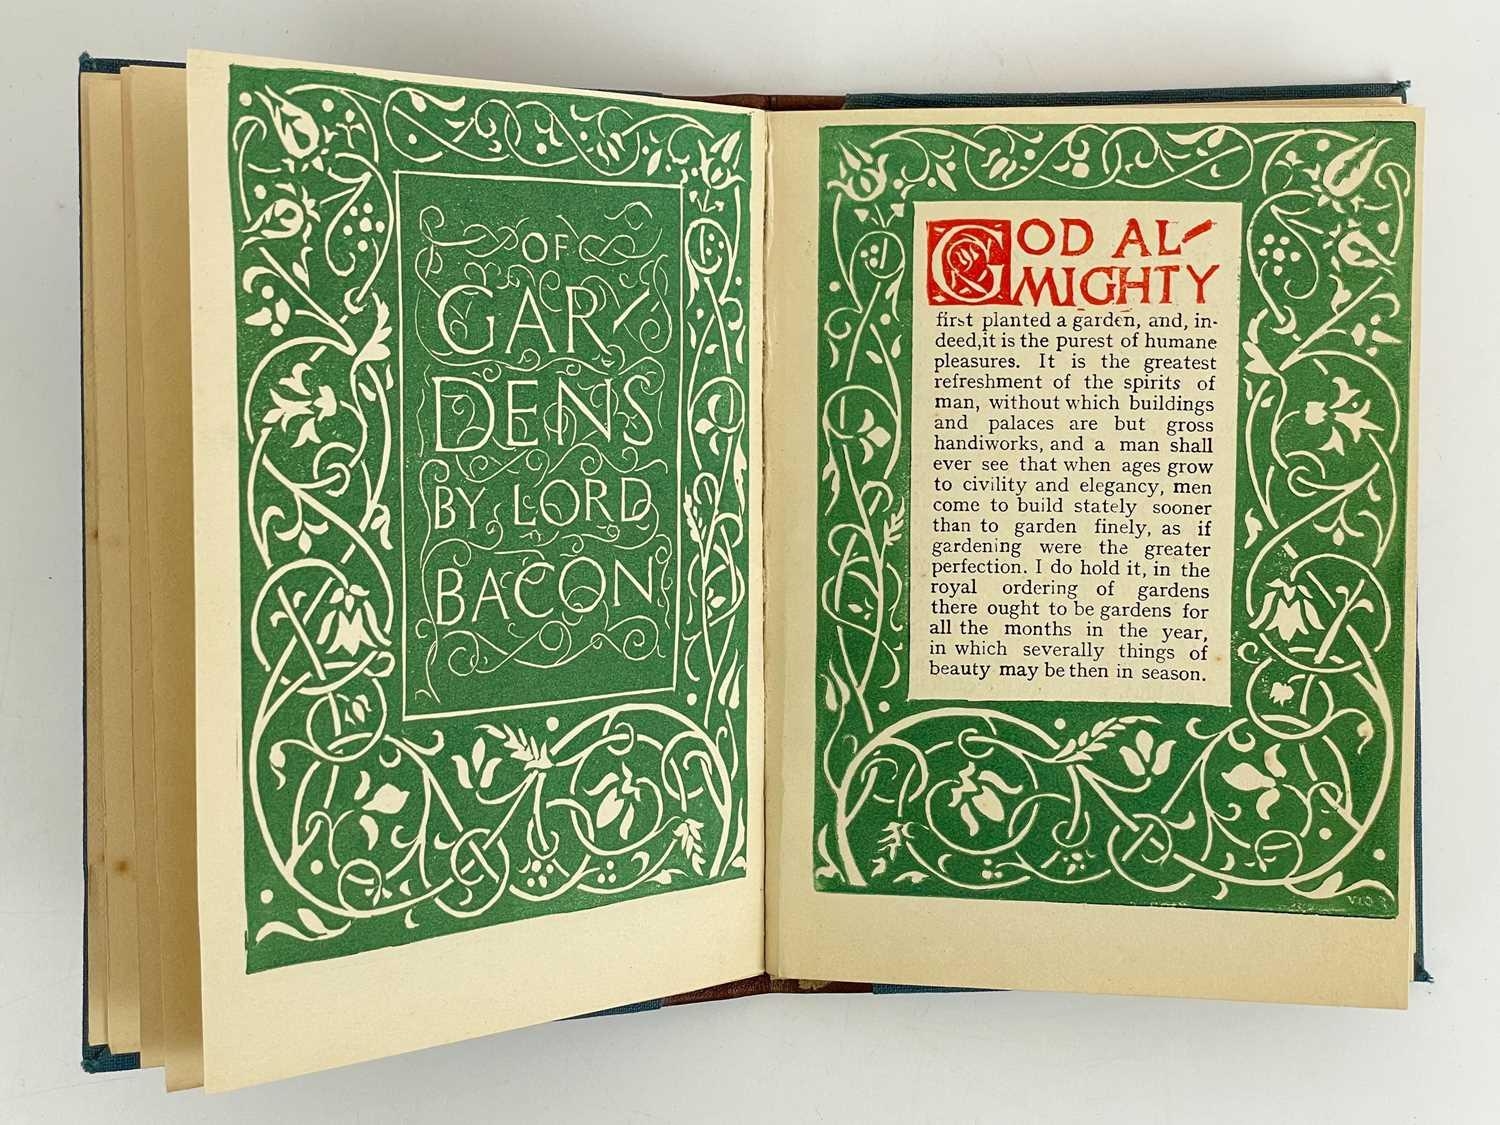 OF
GAR-
DENS
BY LORD
BACON
GOD AL-
MIGHTY
first planted a garden, and, in-
deed, it is the purest of humane
pleasures. It is the greatest
refreshment of the spirits of
man, without which buildings
and palaces are but gross
handiworks, and a man shall
ever see that when ages grow
to civility and elegancy, men
come to build stately sooner
than to garden finely, as if
gardening were the greater
perfection. I do hold it, in the
royal ordering of gardens
there ought to be gardens for
all the months in the year,
in which severally things of
beauty may be then in season.